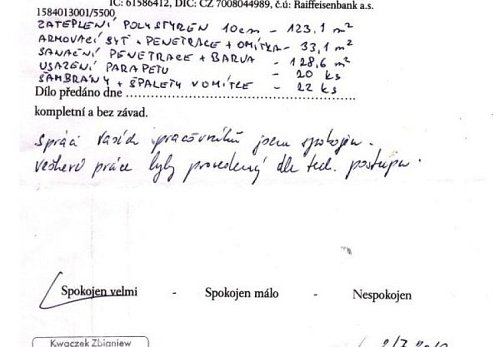 IČ: 61586412, DIČ: CZ 7008044989, č.ú: Raiffeisenbank a.s.
1584013001/5500
ZATEPLENÍ POLYSTYRÉN 10cm - 123,1 m²
ARMOVACÍ SÍŤ + PENETRACE + OMÍTKA - 33,1 m²
SANAČNÍ PENETRACE + BARVA - 128,6 m²
USAZENÍ PARAPETU - 20 ks
ŠAMBRÁNY + ŠPALETY V OMÍTCE - 22 ks
Dílo předáno dne
kompletní a bez závad.
S prací Vašich pracovníků jsem spokojen.
veškeré práce byly provedeny dle tech. postupu.
Spokojen velmi - Spokojen málo - Nespokojen
Kwaczek Zbigniew